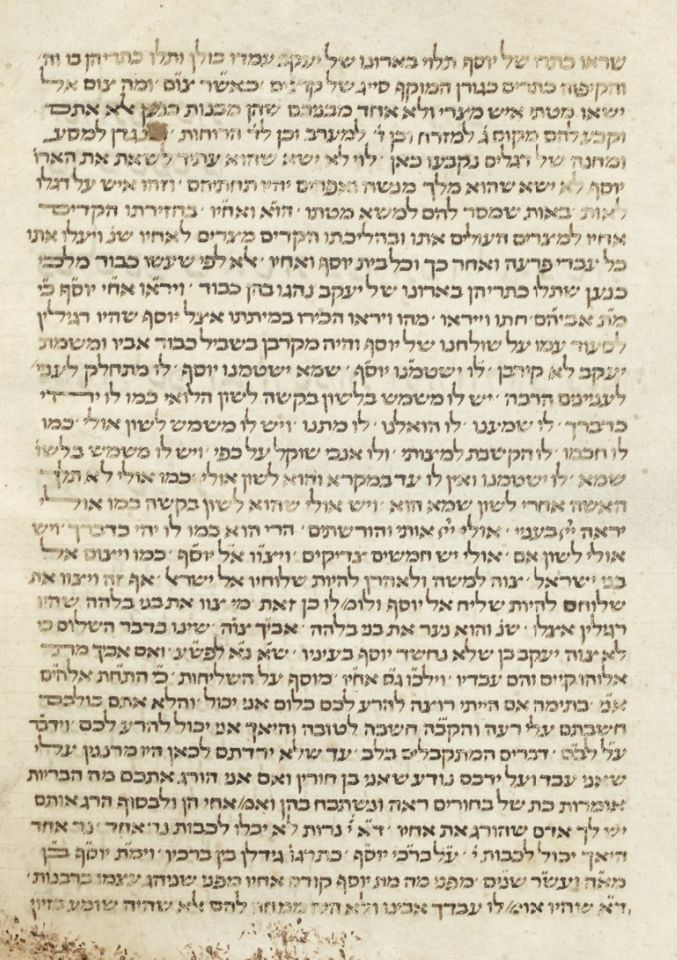 שראו כתרו של יוסף תלוי בארונו של יעקב עמדו כולן ותלו כתריהן בו וה׳
והקיפוה כתרים כגורן המוקף סייג של קוצים ׳ כאשר צום ׳ ומה צום אל
ישאו מטתי איש מצרי ולא אחד מבניכם שהן מבנות כנען לא אתכם
וקבע להם מקום ג׳ למזרח וכן ד׳ למערב וכן לד׳ הרוחות ׳ למסע
ומחנה של דגלים נקבעו כאן ׳ לוי לא ישא שהוא עתיד לשאת את הארו׳
יוסף לא ישא שהוא מלך מנשה ואפרים יהיו תחתיהם ׳ וזהו איש על דגלו
לאות ׳ באות שמסר להם למשא מטתו ׳ הוא ואחיו ׳ בחזירתו הקדים
אחיו למצרים העולים אתו ובהליכתו הקדים מצרים לאחיו שנ׳ ויעלו אתו
כל עבדי פרעה ואחר כך וכל בית יוסף ואחיו ׳ אלא לפי שעשו כבוד מלכי
כנען שתלו כתריהן בארונו של יעקב נהגו בהן כבוד ׳ ויראו אחי יוסף כי
מת אביהם ׳ מהו ויראו הכירו במיתתו אצל יוסף שהיו רגילין
לסעוד עמו על שולחנו של יוסף והיה מקרבן בשביל כבוד אביו ומשמת
יעקב לא קירבן ׳ לו ישטמנו יוסף ׳ שמא ישטמנו יוסף ׳ לו מתחלק לעניי׳
לעניינים הרבה ׳ יש לו משמש בלשון בקשה לשון הלואי כמו לו יהי
כדברך ׳ לו שמעני ׳ לו הואלנו ׳ לו מתנו ׳ ויש לו משמש לשון אולי ׳ כמו
לו חכמו ׳ לו הקשבת למצותי ׳ ולו אנכי שוקל על כפי ׳ ויש לו משמש בלשו׳
שמא ׳ לו ישטמנו ואין לו עד במקרא והוא לשון אולי ׳ כמו אולי לא תלך
האשה אחרי לשון שמא הוא ׳ ויש אולי שהוא לשון בקשה כמו אולי
יראה ייי בעניי ׳ אולי ייי אותי והורשתים ׳ הרי הוא כמו לו יהי כדברך ׳ ויש
אולי לשון אם ׳ אולי יש חמשים צדיקים ׳ ויצוו אל יוסף ׳ כמו ויצום אל
בני ישראל ׳ צוה למשה ולאהרן להיות שלוחיו אל ישראל ׳ אף זה ויצוו את
שלוחם להיות שליח אל יוסף ולומ׳ לו כן זאת ׳ מי צוו את בני בלהה שהיו
רגילין אצלו ׳ שנ׳ והוא נער את בני בלהה ׳ אביך צוה ׳ שינו בדבר השלום כי
לא צוה יעקב כן שלא נחשד יוסף בעיניו ׳ שא נא לפשע ׳ ואם אביך מת
אלוהו קיים והם עבדיו ׳ וילכו גם אחיו ׳ מוסף על השליחות ׳ כי התחת אלהים
אני ׳ בתימה אם הייתי רוצה להרע לכם כלום אני יכול ׳ והלא אתם כולכם
חשבתם עלי רעה והקב״ה חשבה לטובה והיאך אני יכול להרע לכם ׳ וידבר
על לבם ׳ דברים המתקבלים בלב ׳ עד שלא ירדתם לכאן היו מרננין עלי
שאני עבד ועל ידכם נודע שאני בן חורין ואם אני הורג אתכם מה הבריות
אומרות כת של בחורים ראה ונשתבח בהן ואמ׳ אחי הן ולבסוף הרג אותם
יש לך אדם שהורג את אחיו ׳ ד״א י׳ נרות לא יכלו לכבות נר אחד ׳ נר אחד
היאך יכול לכבות י׳ ׳ על ברכי יוסף ׳ כתרגו׳ גידלן בין ברכיו ׳ וימת יוסף בן
מאה ועשר שנים ׳ מפני מה מת יוסף קודם אחיו מפני שניהג עצמו ברבנות ׳
ד״א שהיו אומ׳ לו עבדך אבינו ולא היה ממחה להם אלא שהיה שומע בזיון